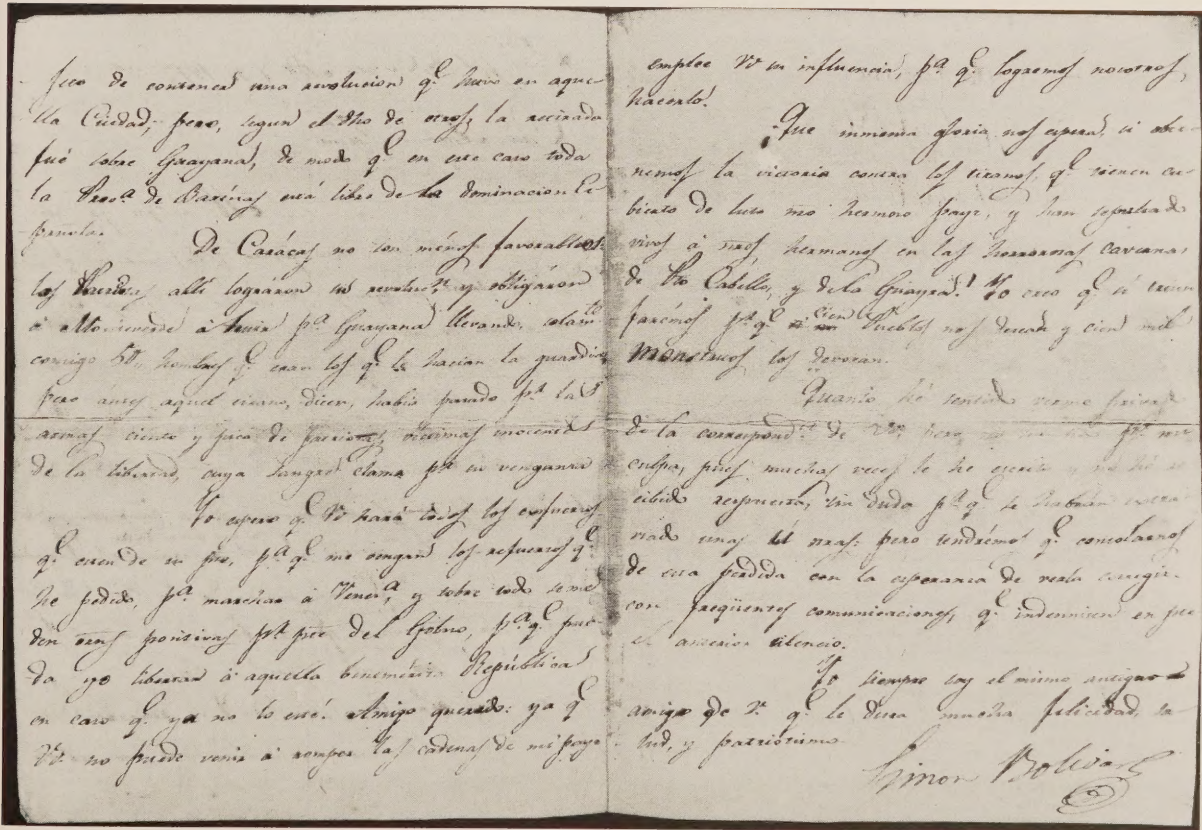 jeto de contener una revolucion q.e huvo en aque-
lla Ciudad; pero, segun el dho de otros, la retirada
fué sobre Guayana, de modo q.e en este caso toda
la Prov.a de Barínas está libre de la dominacion Es-
pañola.
De Carácas no son ménos favorables:
los allí lográron su revoluc.n y obligáron
á Monteverde á huir p.a Guayana llevando, solam.te
consigo 50,, hombres q.e eran los q.e le hacian la guardia,
pero ántes aquel tirano, dicen, habia pasado p.r las
armas ciento y pico de víctimas inocentes
de la libertad, cuya sangre clama p.r su venganza
Yo espero q.e Vd hará todos los esfuerzos
q.e esten de su p.te, p.a q.e me vengan los refuerzos q.e
he pedido, p.a marchar á Venez.a, y sobre todo se me
den orns positivas p.r pte del Gobno, p.a q.e pue-
da yo libertar á aquella benemérita República
en caso q.e ya no lo esté. Amigo querido: ya q.e
Vd no puede venir á romper las cadenas de mi pays
emplee Vd su influencia, p.a q.e logremos nosotros,
hacerlo!
¡Que inmensa gloria nos espera, si obte-
nemos la victoria contra los tiranos, q.e tienen cu-
bierto de luto nro hermoso pays, y han sepultado
vivos á nros, hermanos en las horrorosas cavernas
de Pto Cabello, y de la Guayra! Yo creo q.e si triun-
farémos p.r q.e cien Pueblos nos desean y cien mil
monstruos los devoran.
Quanto hé sentido verme privad
de la correspond.cia de Vd, pero no p.r mi
culpa, pues muchas veces le he escrito y no hé re-
cibido respuesta, sin duda p.r q.e se habrán extra-
viado unas ú otras: pero tendrémos q.e consolarnos
de esa perdida con la esperanza de verla
con freqüentes comunicaciones, q.e indemnicen en pte
el anterior silencio.
Yo siempre soy el mismo antiguo
amigo de V. q.e le desea mucha felicidad, sa-
lud, y patriotismo
Simon Bolivar